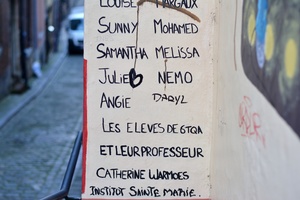 LOUISE MARGAUX
SUNNY MOHAMED
SAMANTHA MELISSA
JULIE NEMO
ANGIE DARYL
LES ELEVES DE GTQA
ET LEUR PROFESSEUR
CATHERINE WARMOES
INSTITUT SAINTE MARIE